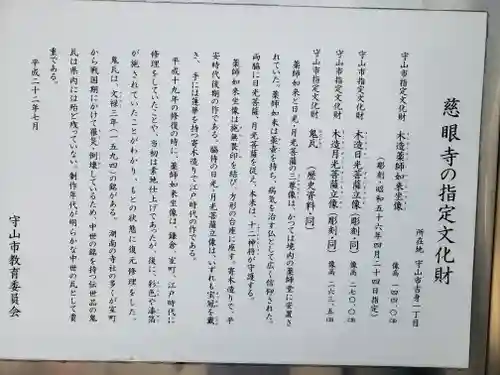 慈眼寺の指定文化財
所在地 守山市吉身一丁目
守山市指定文化財 木造薬師如来坐像 像高 一四四、〇㌢
(彫刻・昭和五十六年四月二十四日指定)
守山市指定文化財 木造日光菩薩立像(彫刻・同) 像高 二七〇、〇㌢
守山市指定文化財 木造月光菩薩立像(彫刻・同) 像高 二六三、五㌢
守山市指定文化財 鬼瓦 (歴史資料・同)
薬師如来と日光・月光菩薩の三尊像は、かつては境内の薬師堂に安置さ
れていた。薬師如来は薬壷を持ち、病気を治す仏として広く信仰された。
両脇に日光菩薩、月光菩薩を従え、本来は、十二神将が守護する。
薬師如来坐像は施無畏印を結び、方形の台座に座す。寄木造りで、平
安時代後期の作である。脇侍の日光・月光菩薩立像は、いずれも宝冠を戴
き、手には蓮華を持つ寄木造りで江戸時代の作である。
平成十九年の修復の時に、薬師如来坐像は、鎌倉・室町・江戸時代に
修理をしていたことや、当初は素地仕上げであったが、後に、彩色や漆箔
が施されていたことがわかり、もとの状態に復元修理をした。
鬼瓦は、文禄三年(一五九四)の銘がある。湖南の寺社の多くが室町
から戦国期にかけて罹災・倒壊しているため、中世の銘を持つ伝世品の鬼
瓦は県内には殆ど残っていない。制作年代が明らかな中世の瓦として貴
重である。
平成二十二年七月
守山市教育委員会